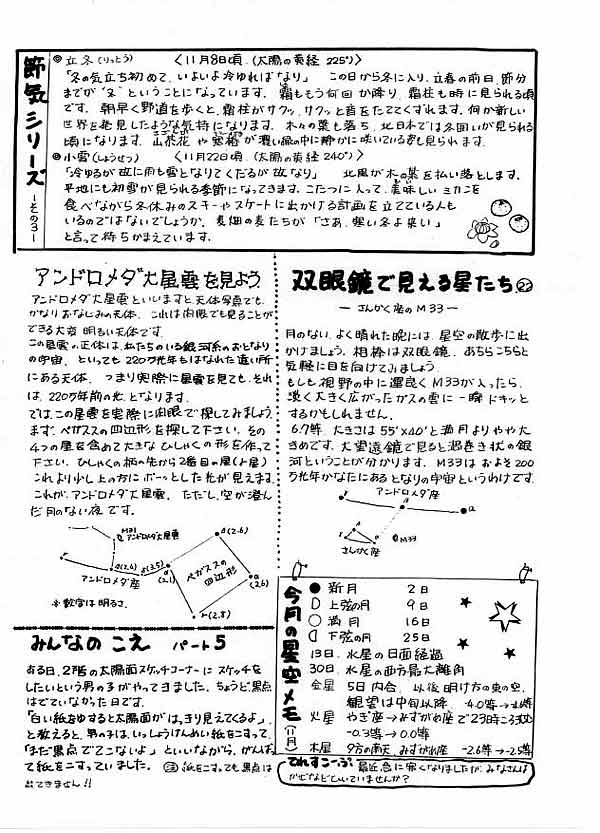 節気シリーズ
ーその3ー
◎立冬(りっとう) 〈11月8日頃.(太陽の黄経 225°)
「冬の気立ち初めて、いよいよ冷ゆればなり」 この日から冬に入り、立春の前日、節分
までが"冬"ということになっています。霜ももう何回か降り、霜柱も時に見られる頃
です。朝早く野道を歩くと、霜柱がサクッ、サクッと音をたててくずれます。何か新しい
世界を発見したような気持になります。木々の葉も落ち、北日本では冬囲いが見られる
頃になります。山茶花や
が濃い緑の中に静かに咲いている姿も見られます。
◎小雪(しょうせつ) 〈11月22日頃.(太陽の黄経 240°)
「冷ゆるが故に雨も雪となりてくだるが故なり」 北風が木の葉を払い落とします。
平地にも初雪が見られる季節になってきます。こたつに入って、美味しいミカンを
食べながら冬休みのスキーやスケートに出かける計画を立てている人も
いるのではないでしょうか。麦畑の麦たちが「さあ、寒い冬よ来い」
と言って待ちかまえています。
アンドロメダ大星雲を見よう
アンドロメダ大星雲といいますと天体写真でも、
かなりおなじみの天体。これは肉眼でも見ることが
できる大変 明るい天体です。
この星雲の天体は、私たちのいる銀河系のおとなり
の宇宙、といっても 220万光年もはなれた遠い所
にある天体。つまり実際に星雲を見ても、それ
は、220万年前の光となります。
では、この星雲を実際に肉眼で探してみましょう。
まず、ペガススの四辺形を探して下さい。その
4つの星を含めて大きな ひしゃくの形を作って
下さい。ひしゃくの柄の先から2番目の星(μ星)
これより少し上の方にボーッとした光が見えます。
これが、アンドロメダ大星雲。ただし、空が澄ん
だ月のない夜です。
M31
アンドロメダ大星雲
β(2.6)
アンドロメダ座
ペガススの四辺形
(2.6)
(2.8)
※数字は明るさ.
双眼鏡で見える星たち㉒
ー さんかく座のM33 ー
月のない、よく晴れた晩には、星空の散歩に出
かけましょう。相棒は双眼鏡。あちらこちらと
気軽に目を向けてみましょう。
もしも、視野の中に運良くM33が入ったら、
淡く大きく広がったガスの雲に一瞬ドキッと
するかもしれません。
6.7等、大きさは 55'×40'と満月よりやや大
きめです。大望遠鏡で見ると渦巻き状の銀
河ということが分かります。M33はおよそ200
万光年かなたにあるとなりの宇宙というわけです。
アンドロメダ座
さんかく座
M33
みんなの こえ パート5
ある日、2階の太陽面スケッチコーナーに スケッチを
したいという男の子がやってきました。ちょうど、黒点
はでていなかった日です。
「白い紙をゆすると太陽面が、はっきり見えてくるよ」、
と教えると、男の子は、いっしょうけんめい紙をゆすって、
「まだ黒点でてこないよ」といいながら、がんばっ
て紙をこすっていました。 紙をこすっても黒点は
出てきません!!
今月の星空メモ
(11月)
● 新月 2日
上弦の月 9日
○ 満月 16日
下弦の月 25日
13日. 水星の日面経過
30日. 水星の西方最大離角
金星 5日 内合. 以後 明け方の東の空.
観望は中旬以降
火星 やぎ座→みずがめ座で23時ころ沈む
-0.3等→0.0等
木星 夕方の南天 みずがめ座 -2.6等→-2.5等
てれすこーぷ 最近 急に寒くなりましたが、みなさんは
かぜなどひいていませんか?